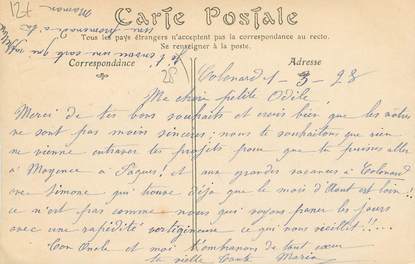 12f
Carte Postale
Tous les pays étrangers n'acceptent pas la correspondance au recto.
Se renseigner à la poste.
Correspondance
Adresse
28
Colonard 1-3-28
Ma chère petite Odile,
Merci de tes bons souhaits et crois bien que les nôtres
ne sont pas moins sincères; nous te souhaitons que rien
ne vienne entraver tes projets pour que tu puisses aller
à Mayence à Pâques! et aux grandes vacances à Colonard
avec Simone qui trouve déjà que le mois d'Août est loin!!
ce n'est pas comme nous qui voyons passer les jours
avec une rapidité vertigineuse ce qui nous vieillit!!...
Ton Oncle et moi t'embrassons de tout cœur
ta vieille Tante Maria
Je t'envoie une carte qui
une promenade à
Maman